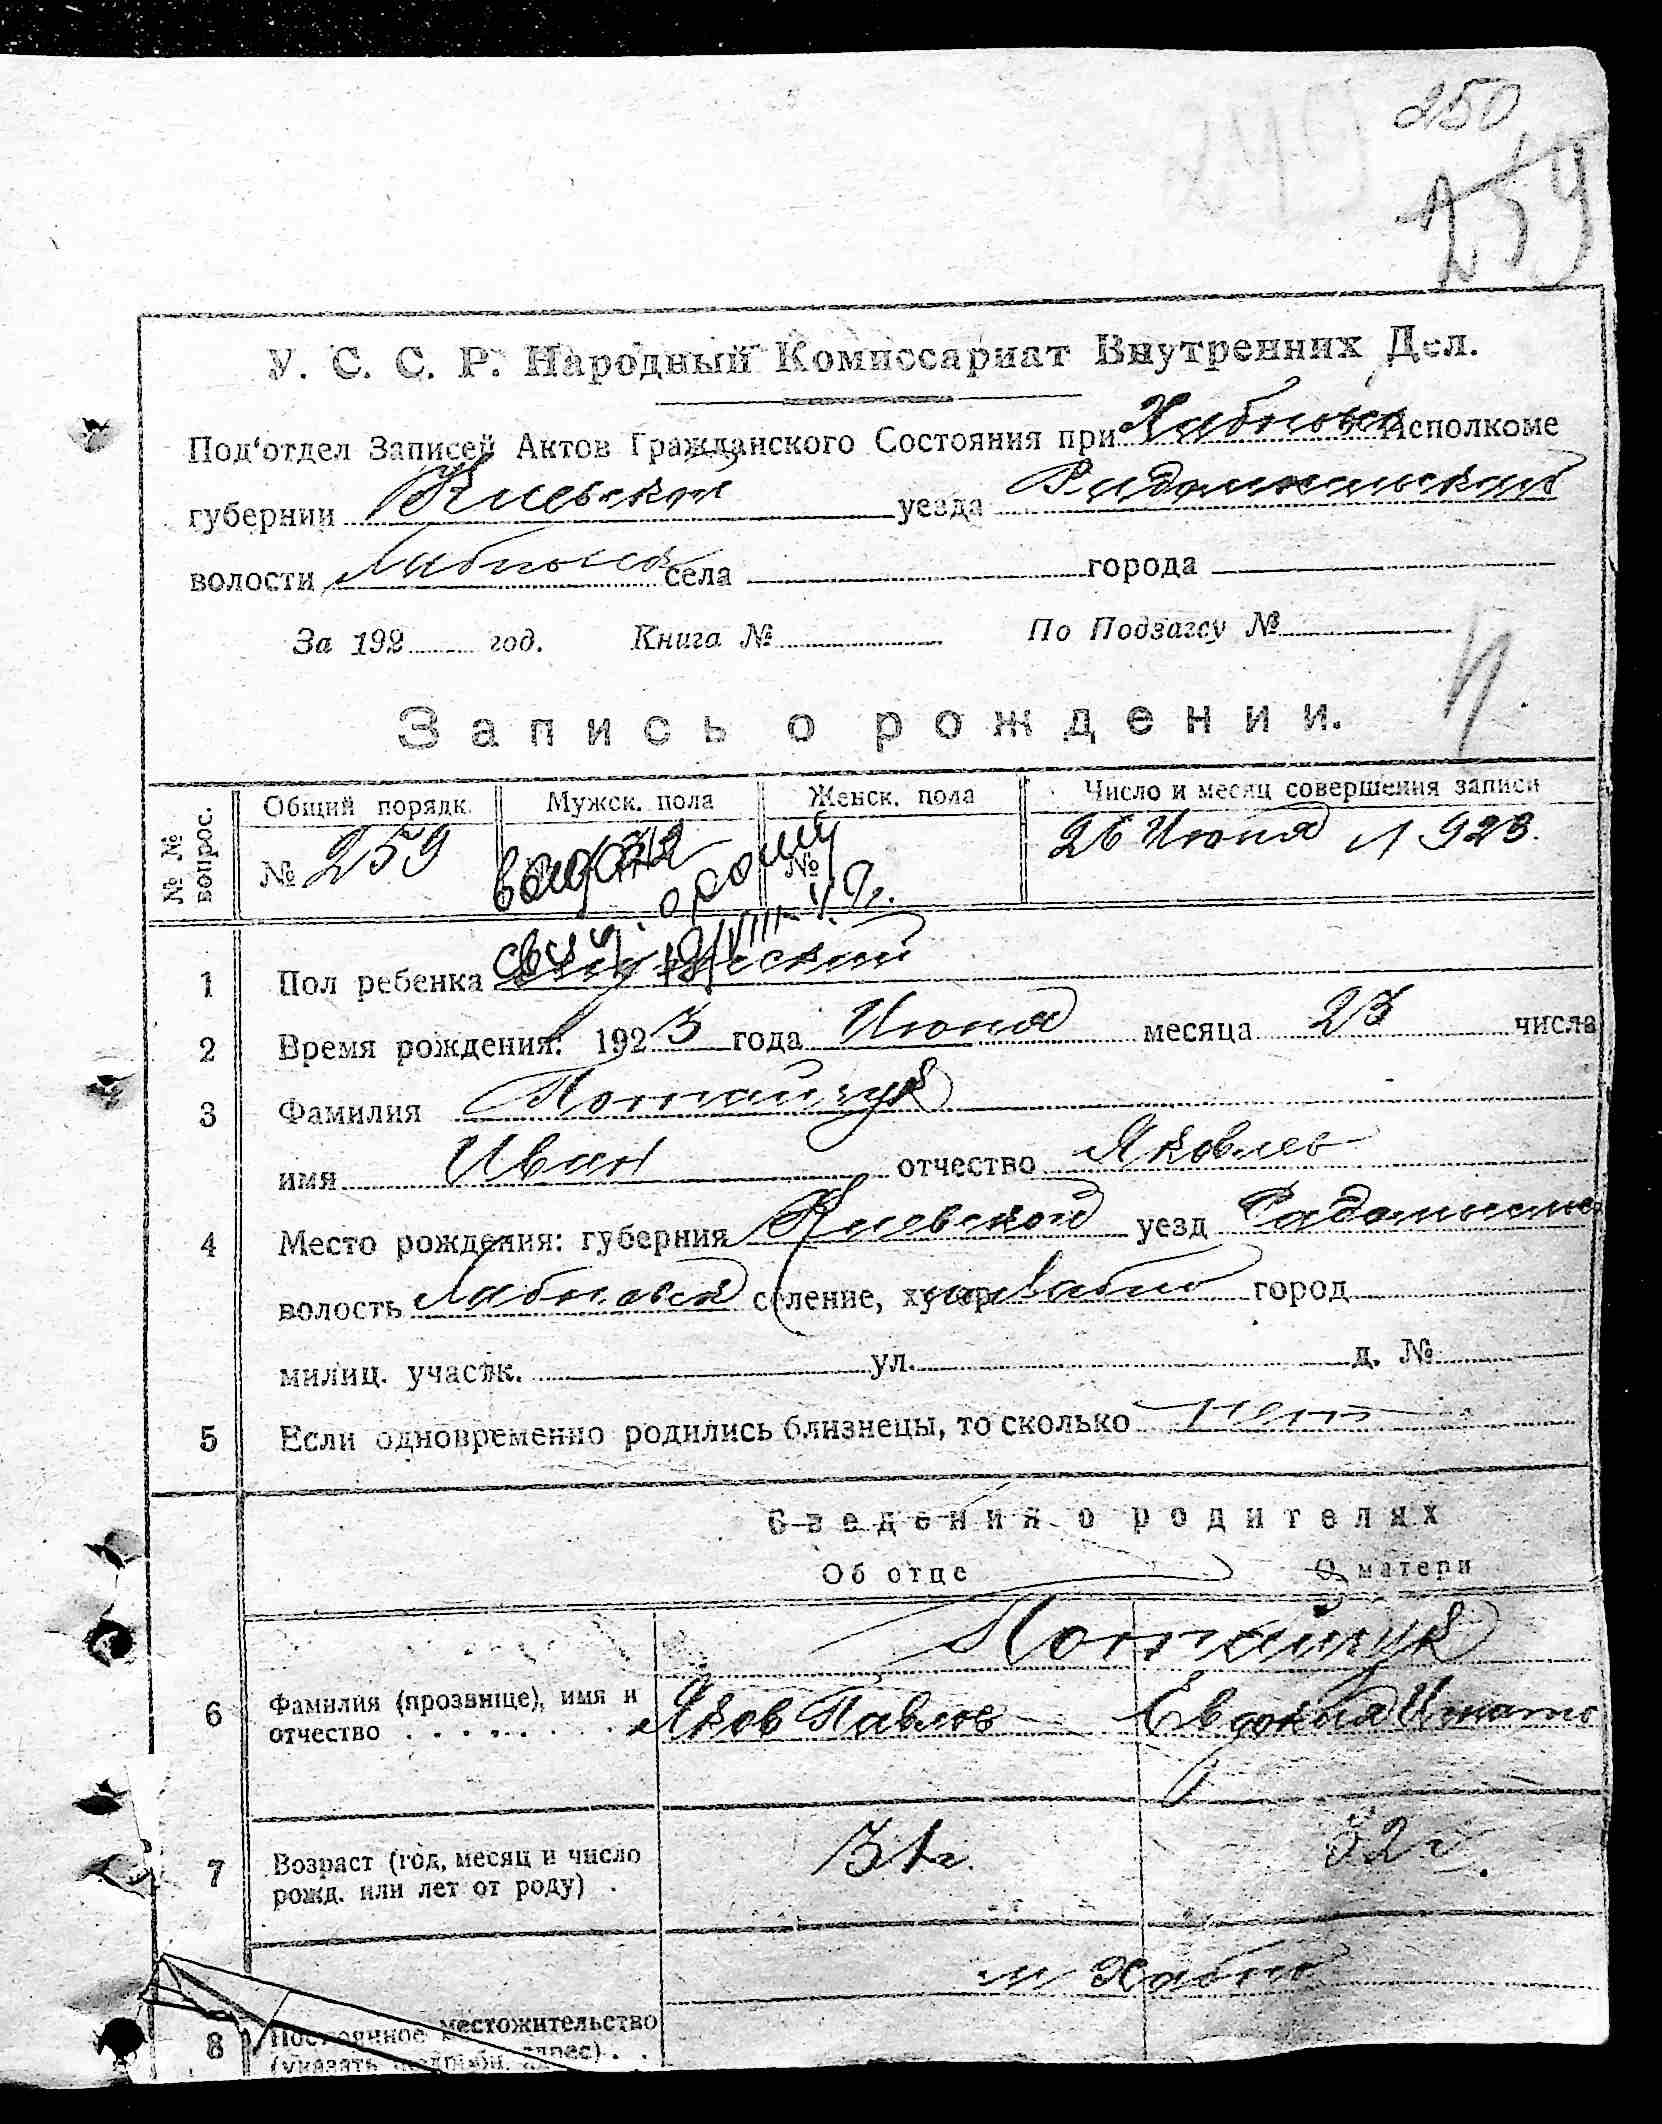 250
259
У. С. С. Р. Народный Комиссариат Внутренних Дел.
Под'отдел Записей Актов Гражданского Состояния при Хабновск Исполкоме
губернии Киевской уезда Радомысльской
волости Хабновск села города
За 192 год. Книга № По Подзагсу №
Запись о рождении.
№ № вопрос.
Общий порядк. Мужск. пола Женск. пола Число и месяц совершения записи
№ 259 № 26 Июня 1923.
1 Пол ребенка мужеский
2 Время рождения: 1923 года Июня месяца 23 числа
3 Фамилия Потайчук
имя Иван отчество Яковлев
4 Место рождения: губерния Киевской уезд Радомысльс
волость Хабновск селение, хутор м Хабно город
милиц. участк. ул. д. №
5 Если одновременно родились близнецы, то сколько нет
Сведения о родителях
Об отце О матери
Потайчук
6 Фамилия (прозвище), имя и
отчество Яков Павлов Евдокия Игнато
7 Возраст (год, месяц и число
рожд. или лет от роду) 31 г. 32 г.
м Хабно
8 Постоянное местожительство
(указать подробн. адрес)